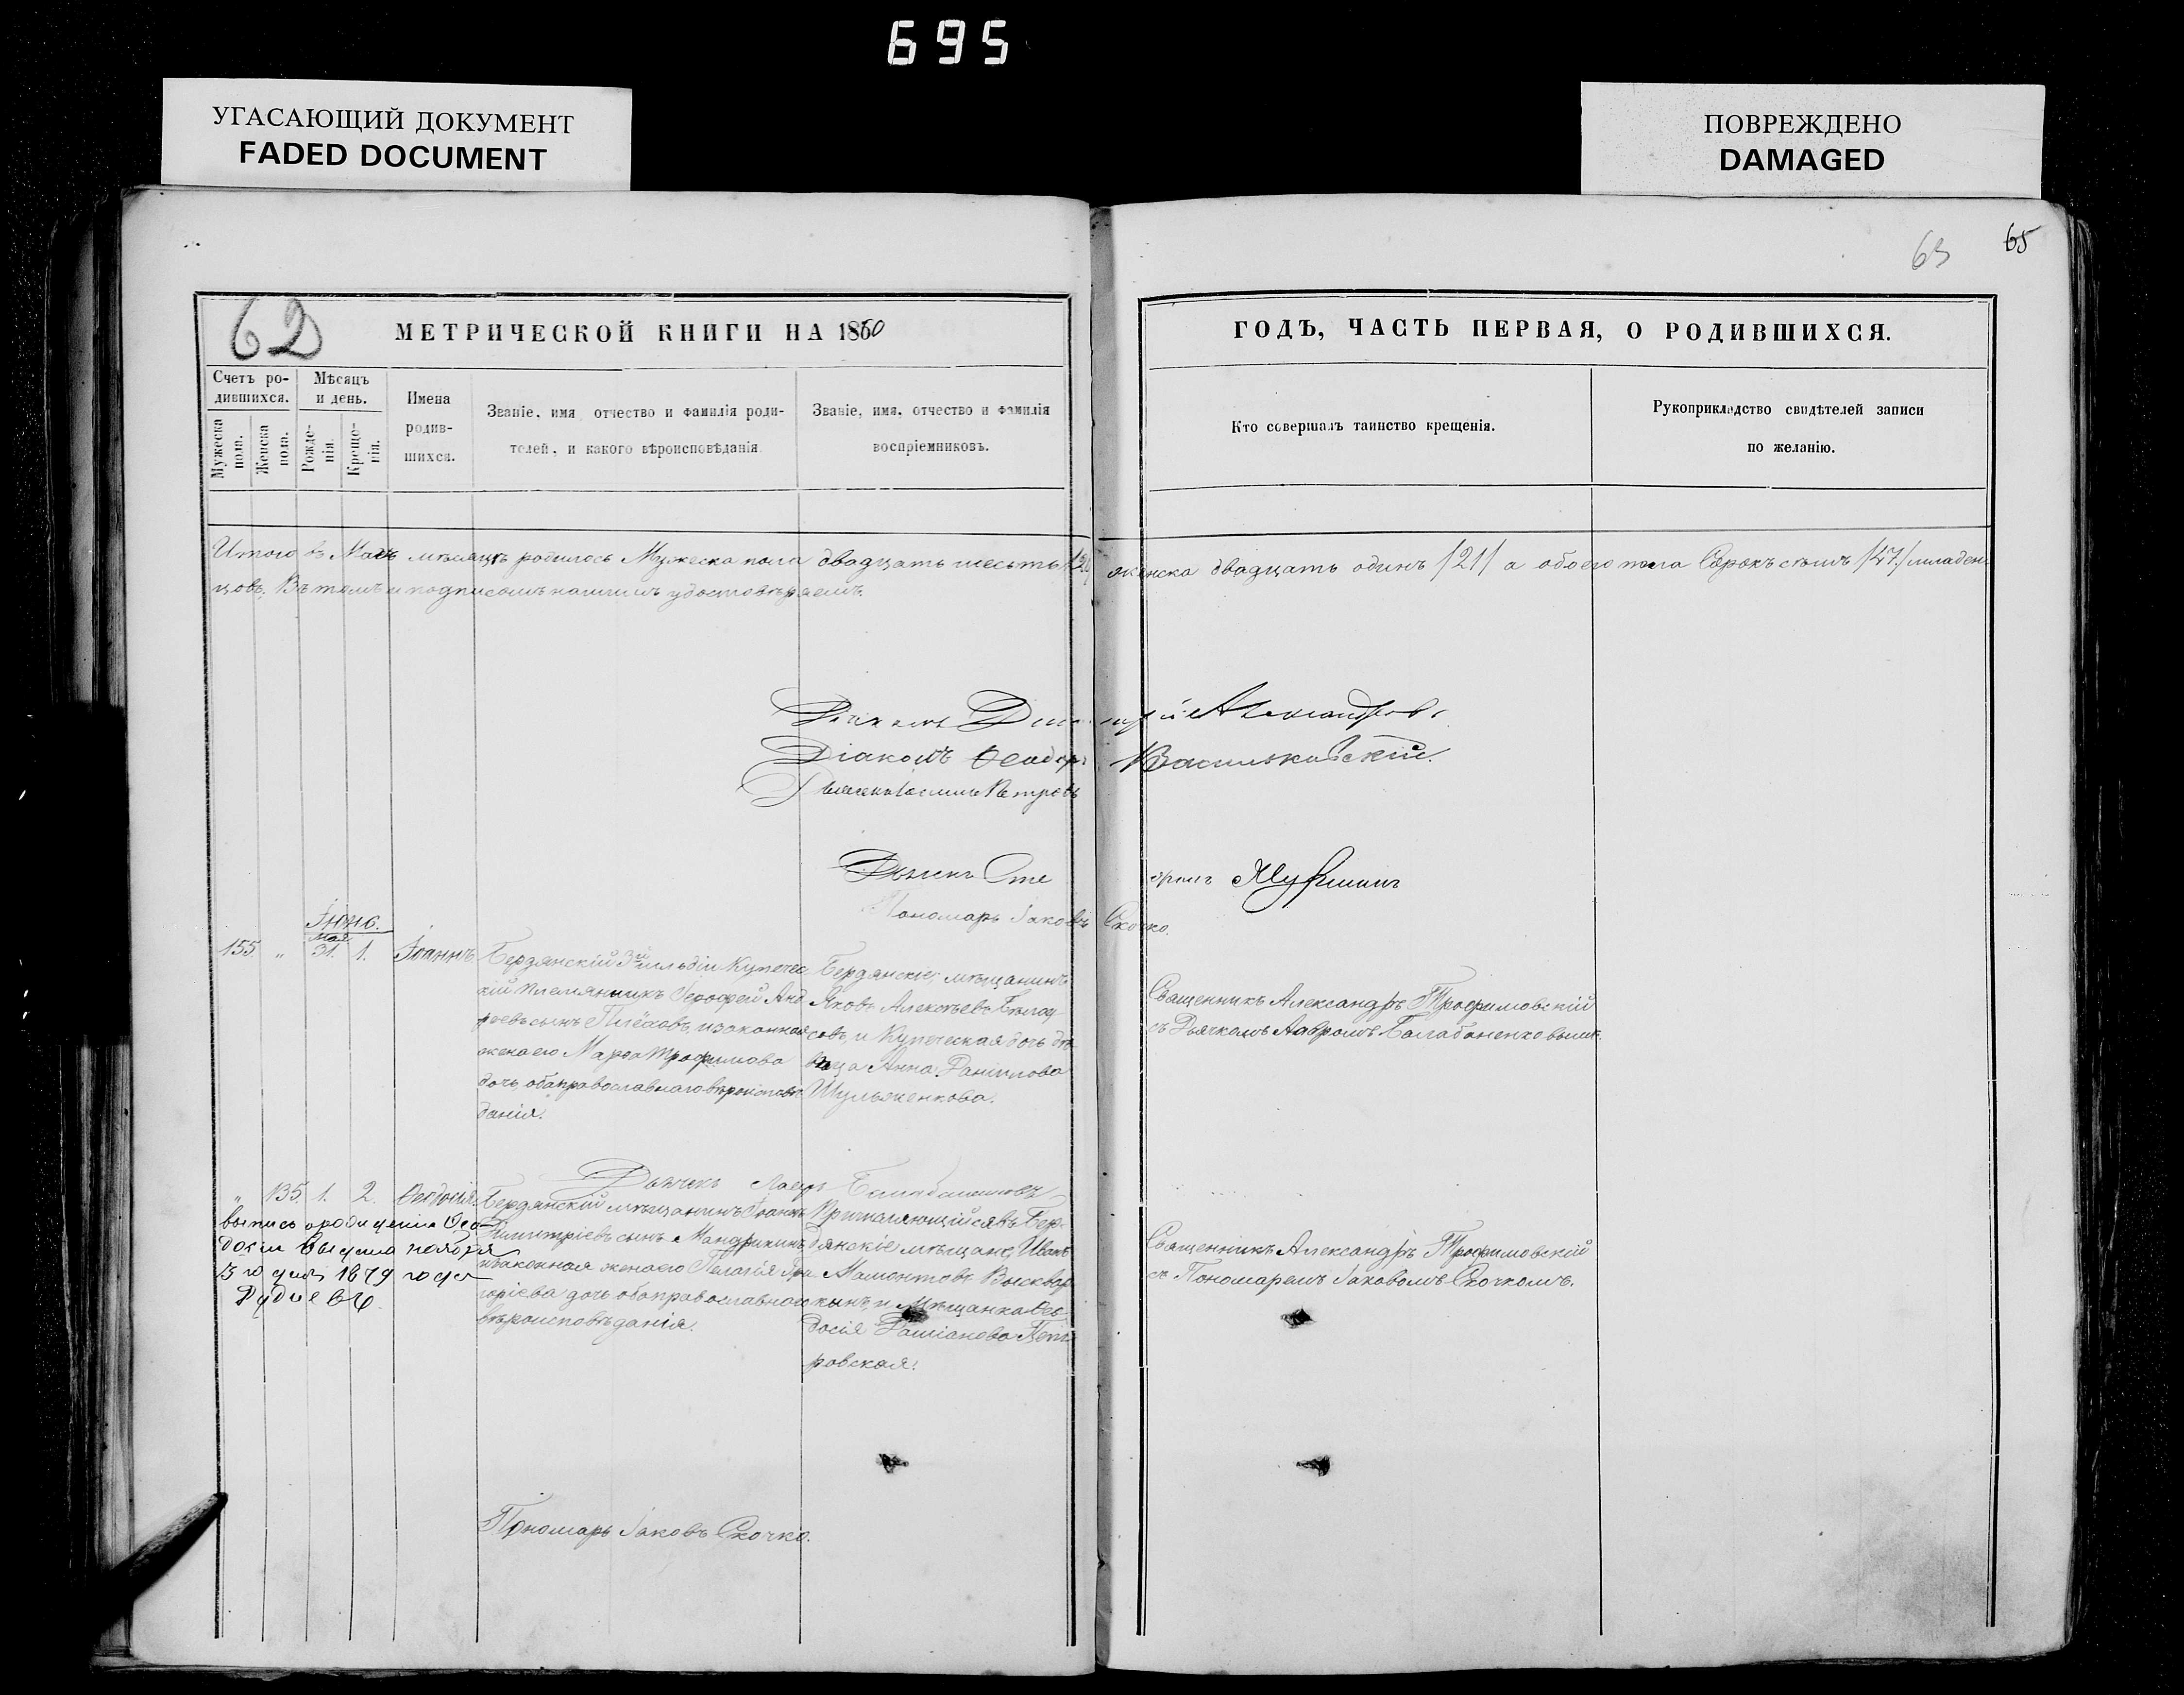 695
УГАСАЮЩИЙ ДОКУМЕНТ
FADED DOCUMENT
ПОВРЕЖДЕНО
DAMAGED
63 65
62
МЕТРИЧЕСКОЙ КНИГИ НА 1860
ГОДЪ, ЧАСТЬ ПЕРВАЯ, О РОДИВШИХСЯ.
Счетъ ро-
дившихся.
Мужеска пола.
Женска пола.
Мѣсяцъ
и день.
Рожде-
нія.
Креще-
нія.
Имена
родив-
шихся.
Званіе, имя отчество и фамилія роди-
телей, и какого вѣроисповѣданія
Званіе, имя, отчество и фамилія
воспріемниковъ.
Кто совершалъ таинство крещенія.
Рукоприкладство свидѣтелей записи
по желанію.
Итого въ Маѣ мѣсяцѣ родилось Мужеска пола двадцать шесть женска двадцать одинъ /21/ а обоего пола Сорокъ семь /47/ младен
цовъ. Въ томъ и подписомъ нашимъ удостовѣряемъ.
Александровъ
Діаконъ Ѳеодоръ Васильковскій.
Петровъ
Дьячекъ
Пономарь Іаковъ Скочко.
Іюнь.
155 " Мая 31. 1. Іоаннъ
Бердянскій 3й гильдіи Купечес
кій племянникъ Іерофей Анд
реевъ сынъ и законная
жена его Марѳа Трофимова
дочь оба православнаго вѣроисповѣ
данія.
Бердянскіе, мѣщанинъ
Яковъ Алексѣевъ Бѣлоу
совъ, и Купеческая дочь дѣ
вица Анна Данилова
Шульженкова.
Священникъ Александръ Трофимовскій
съ Дьячкомъ Лавромъ Балабаненковымъ.
Дьячекъ Лавръ Балабаненковъ
" 135. 1. 2. Ѳеодосія.
Бердянскій мѣщанинъ Іоаннъ
Димитріевъ сынъ Мандрикинъ,
и законная жена его Пелагія Гри
горіева дочь оба православнаго
вѣроисповѣданія.
Причисляющійся въ Бер-
дянскіе мѣщане, Иванъ
Мамонтовъ Высквар
кынъ, и Мѣщанка Ѳео
досія Даміанова Пет
ровская.
Священникъ Александръ Трофимовскій
съ Пономаремъ Іаковомъ Скочкомъ.
выпись о рождении Ѳео-
досіи выдана ноября
13 го дня 1879 года
Пономарь Іаковъ Скочко.